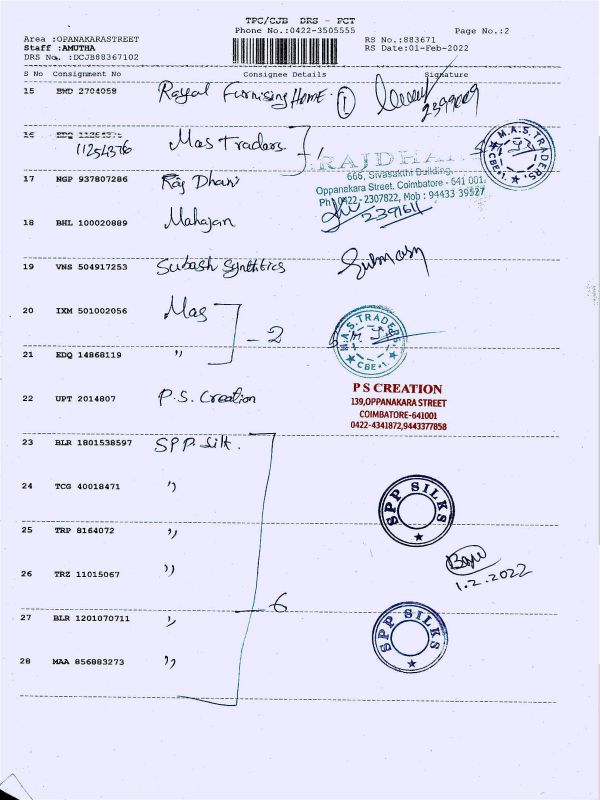 TPC/CJB DRS - PCT
Phone No.:0422-3505555
Page No.:2
Area :OPANAKARASTREET
RS No.:883671
Staff :AMUTHA
RS Date:01-Feb-2022
DRS No. :DCJB88367102
S No Consignment No Consignee Details Signature
15 BMD 2704058 Royal Furnising Home. 1
2399009
16
11254376 Mas Traders
M.A.S. TRADERS
CBE-1.
RAJDHANI
17 NGP 937807286 Raj Dhani
666, Sivasakthi Building,
Oppanakara Street, Coimbatore - 641 001.
Ph : 0422 - 2307822, Mob : 94433 39527
2391611
18 BHL 100020889 Mahajan
19 VNS 504917253 Subash Synthtics
20 IXM 501002056 Mas
- 2
M.A.S. TRADERS
CBE-1.
21 EDQ 14868119 "
22 UPT 2014807 P.S. Creation
P S CREATION
139,OPPANAKARA STREET
COIMBATORE-641001
0422-4341872,9443377858
23 BLR 1801538597 SPP. Silk.
24 TCG 40018471 "
SPP SILKS
25 TRP 8164072 "
26 TRZ 11015067 "
1.2.2022
- 6
27 BLR 1201070711 "
SPP SILKS
28 MAA 856883273 "